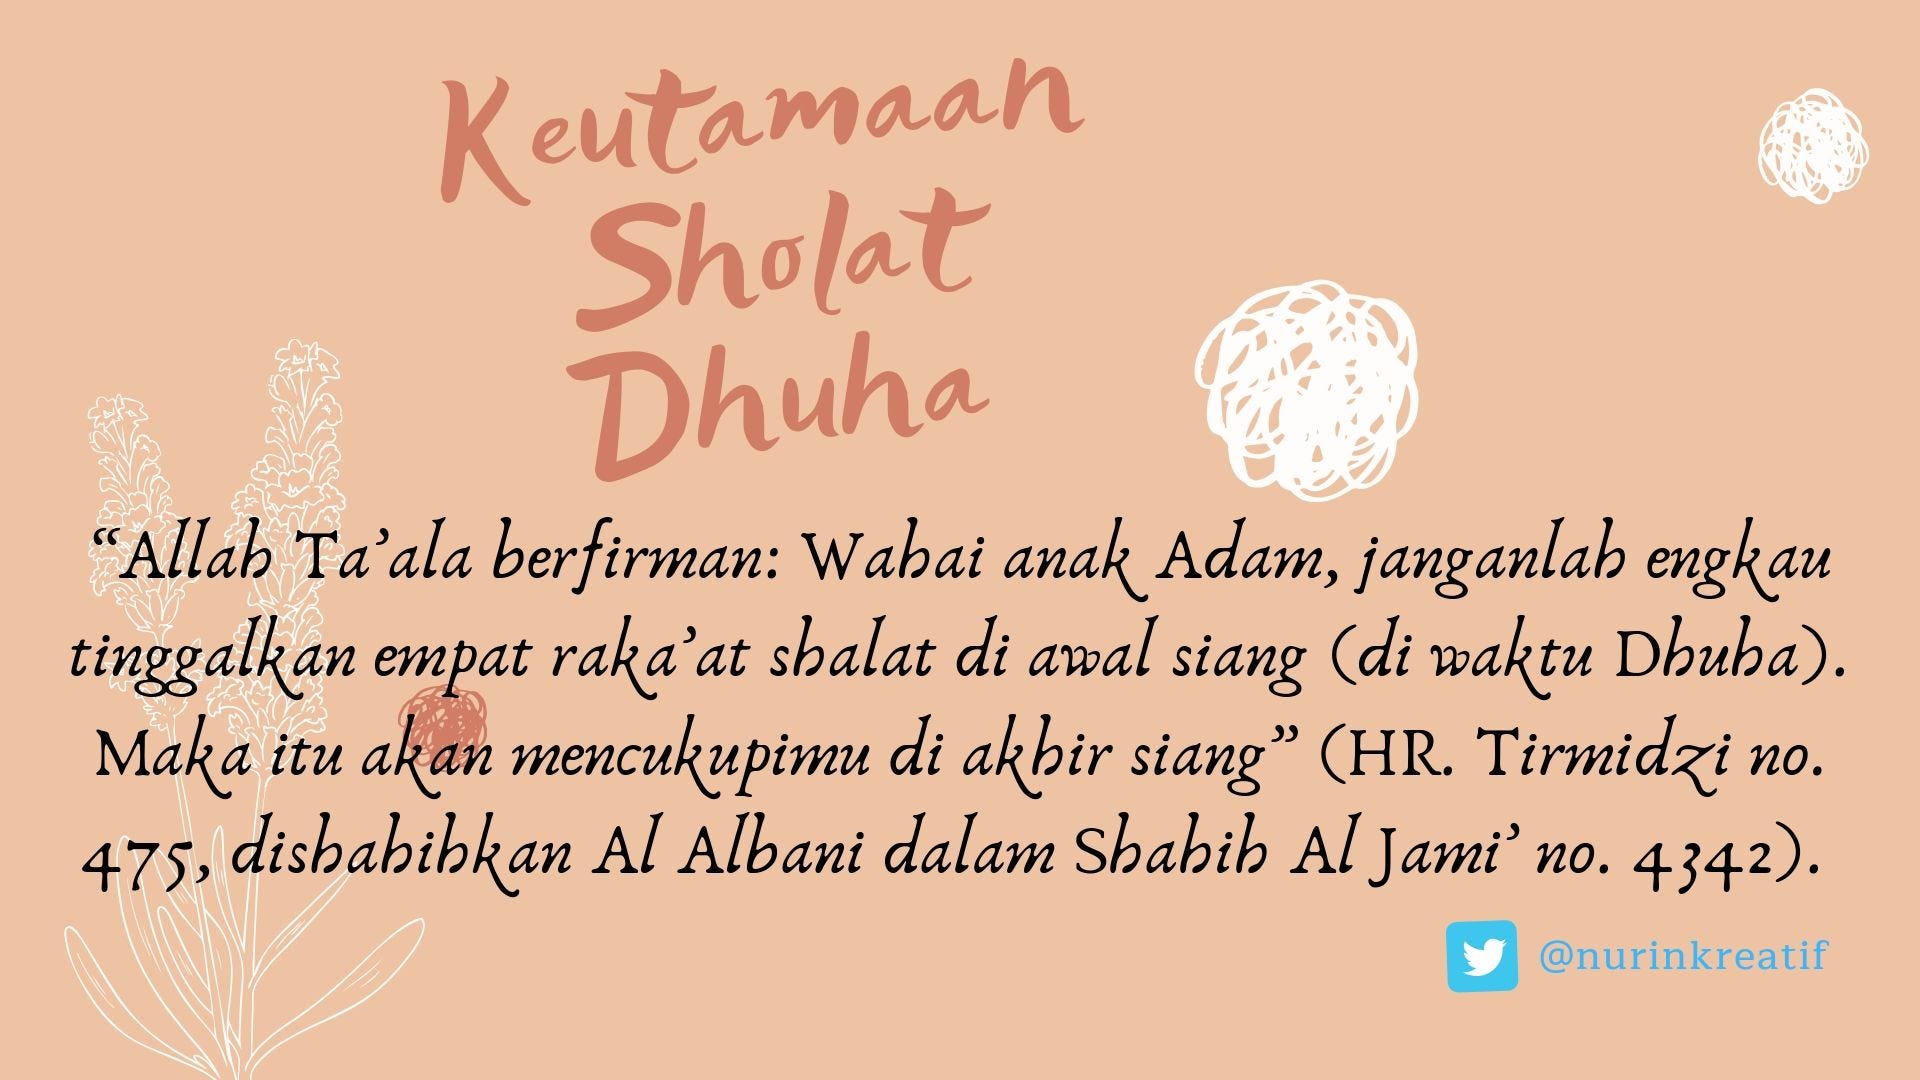 Keutamaan
Sholat
Dhuha
“Allah Ta’ala berfirman: Wahai anak Adam, janganlah engkau
tinggalkan empat raka’at shalat di awal siang (di waktu Dhuha).
Maka itu akan mencukupimu di akhir siang” (HR. Tirmidzi no.
475, dishahihkan Al Albani dalam Shahih Al Jami’ no. 4342).
@nurinkreatif